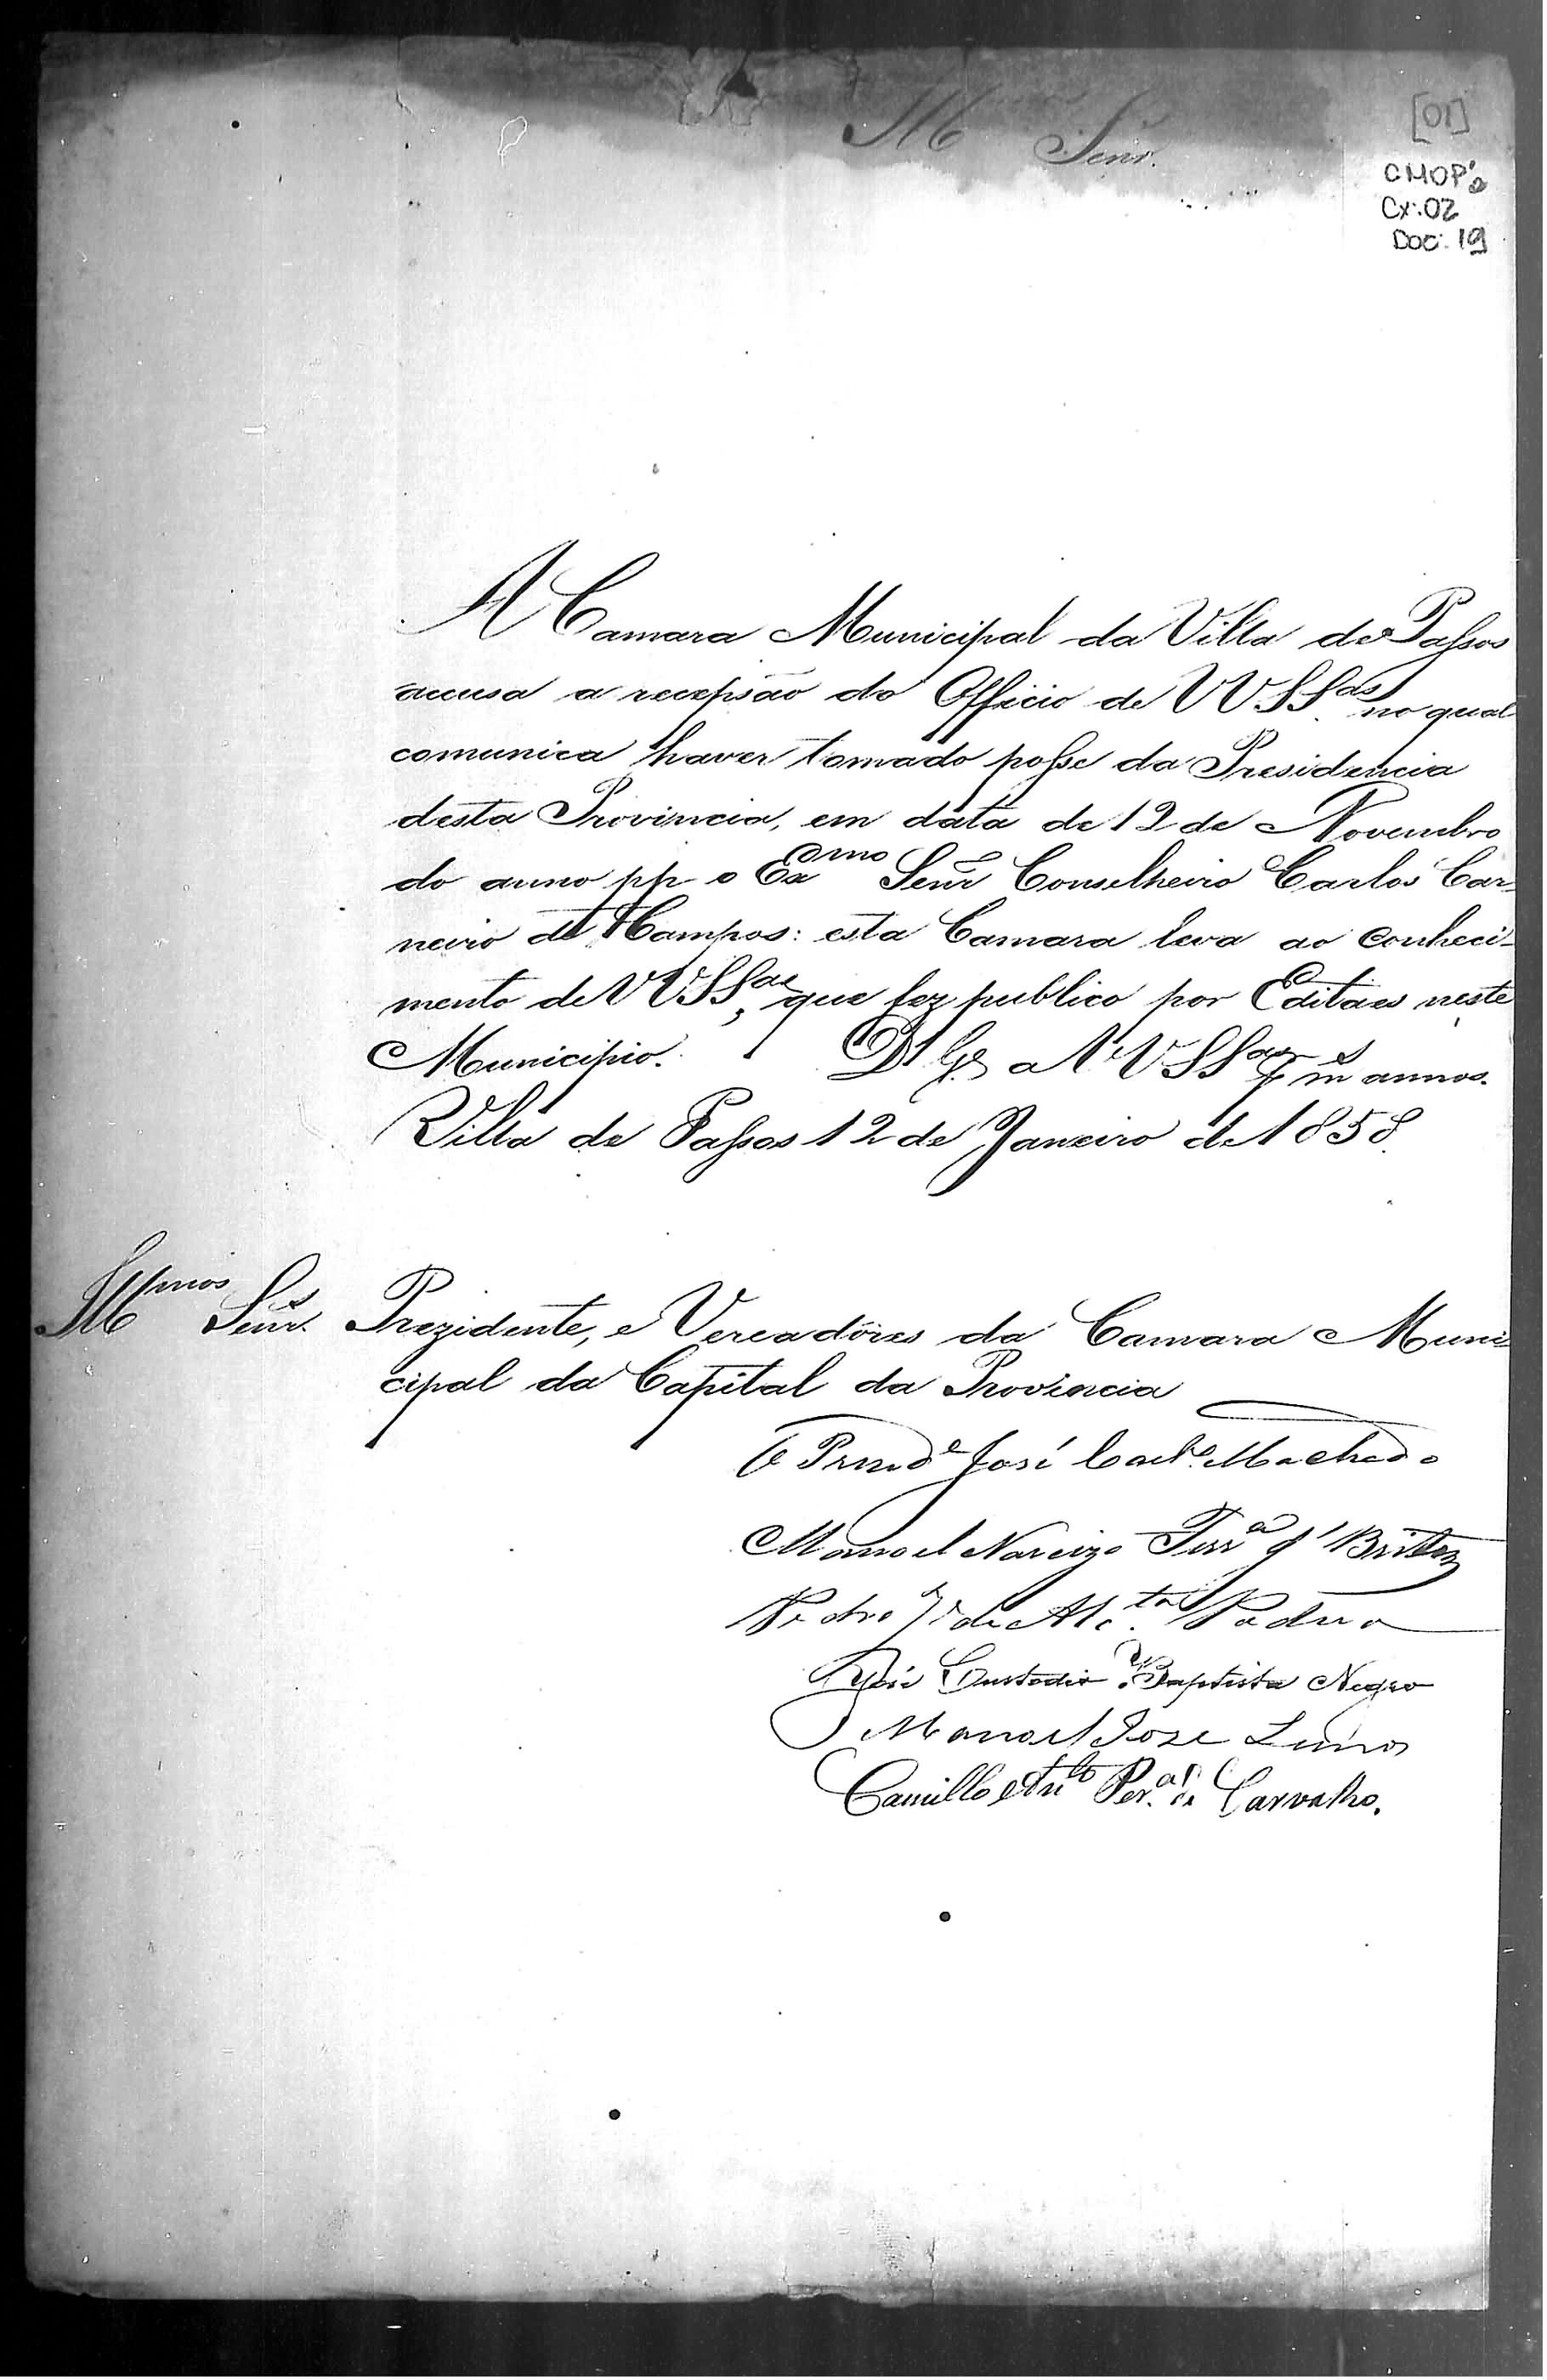 Ill Senr.
[01]
CMOP.
Cx: 02
Doc: 19
A Camara Municipal da Villa de Passos
accusa a recepsão do Officio de VVSSas no qual
comunica haver tomado posse da Presidencia
desta Provincia, em data de 12 de Novembro
do anno pp o Exmo Senr Conselheiro Carlos Car-
neiro de Campos: esta Camara leva ao conheci-
mento de VVSSas, que fez publico por Editaes neste
Municipio. Ds Ge a VVSSas ms annos.
Villa de Passos 12 de Janeiro de 1858.
Illmos Senrs Prezidente, e Vereadores da Camara Muni-
cipal da Capital da Provincia
José Caetº Machado
Manoel Narcizo Ferrª d'Brito
Pedro de Alc.ta Padua
José Custodio Baptista Negro
Manoel Jose Lemos
Camillo Antº Per.ª de Carvalho.